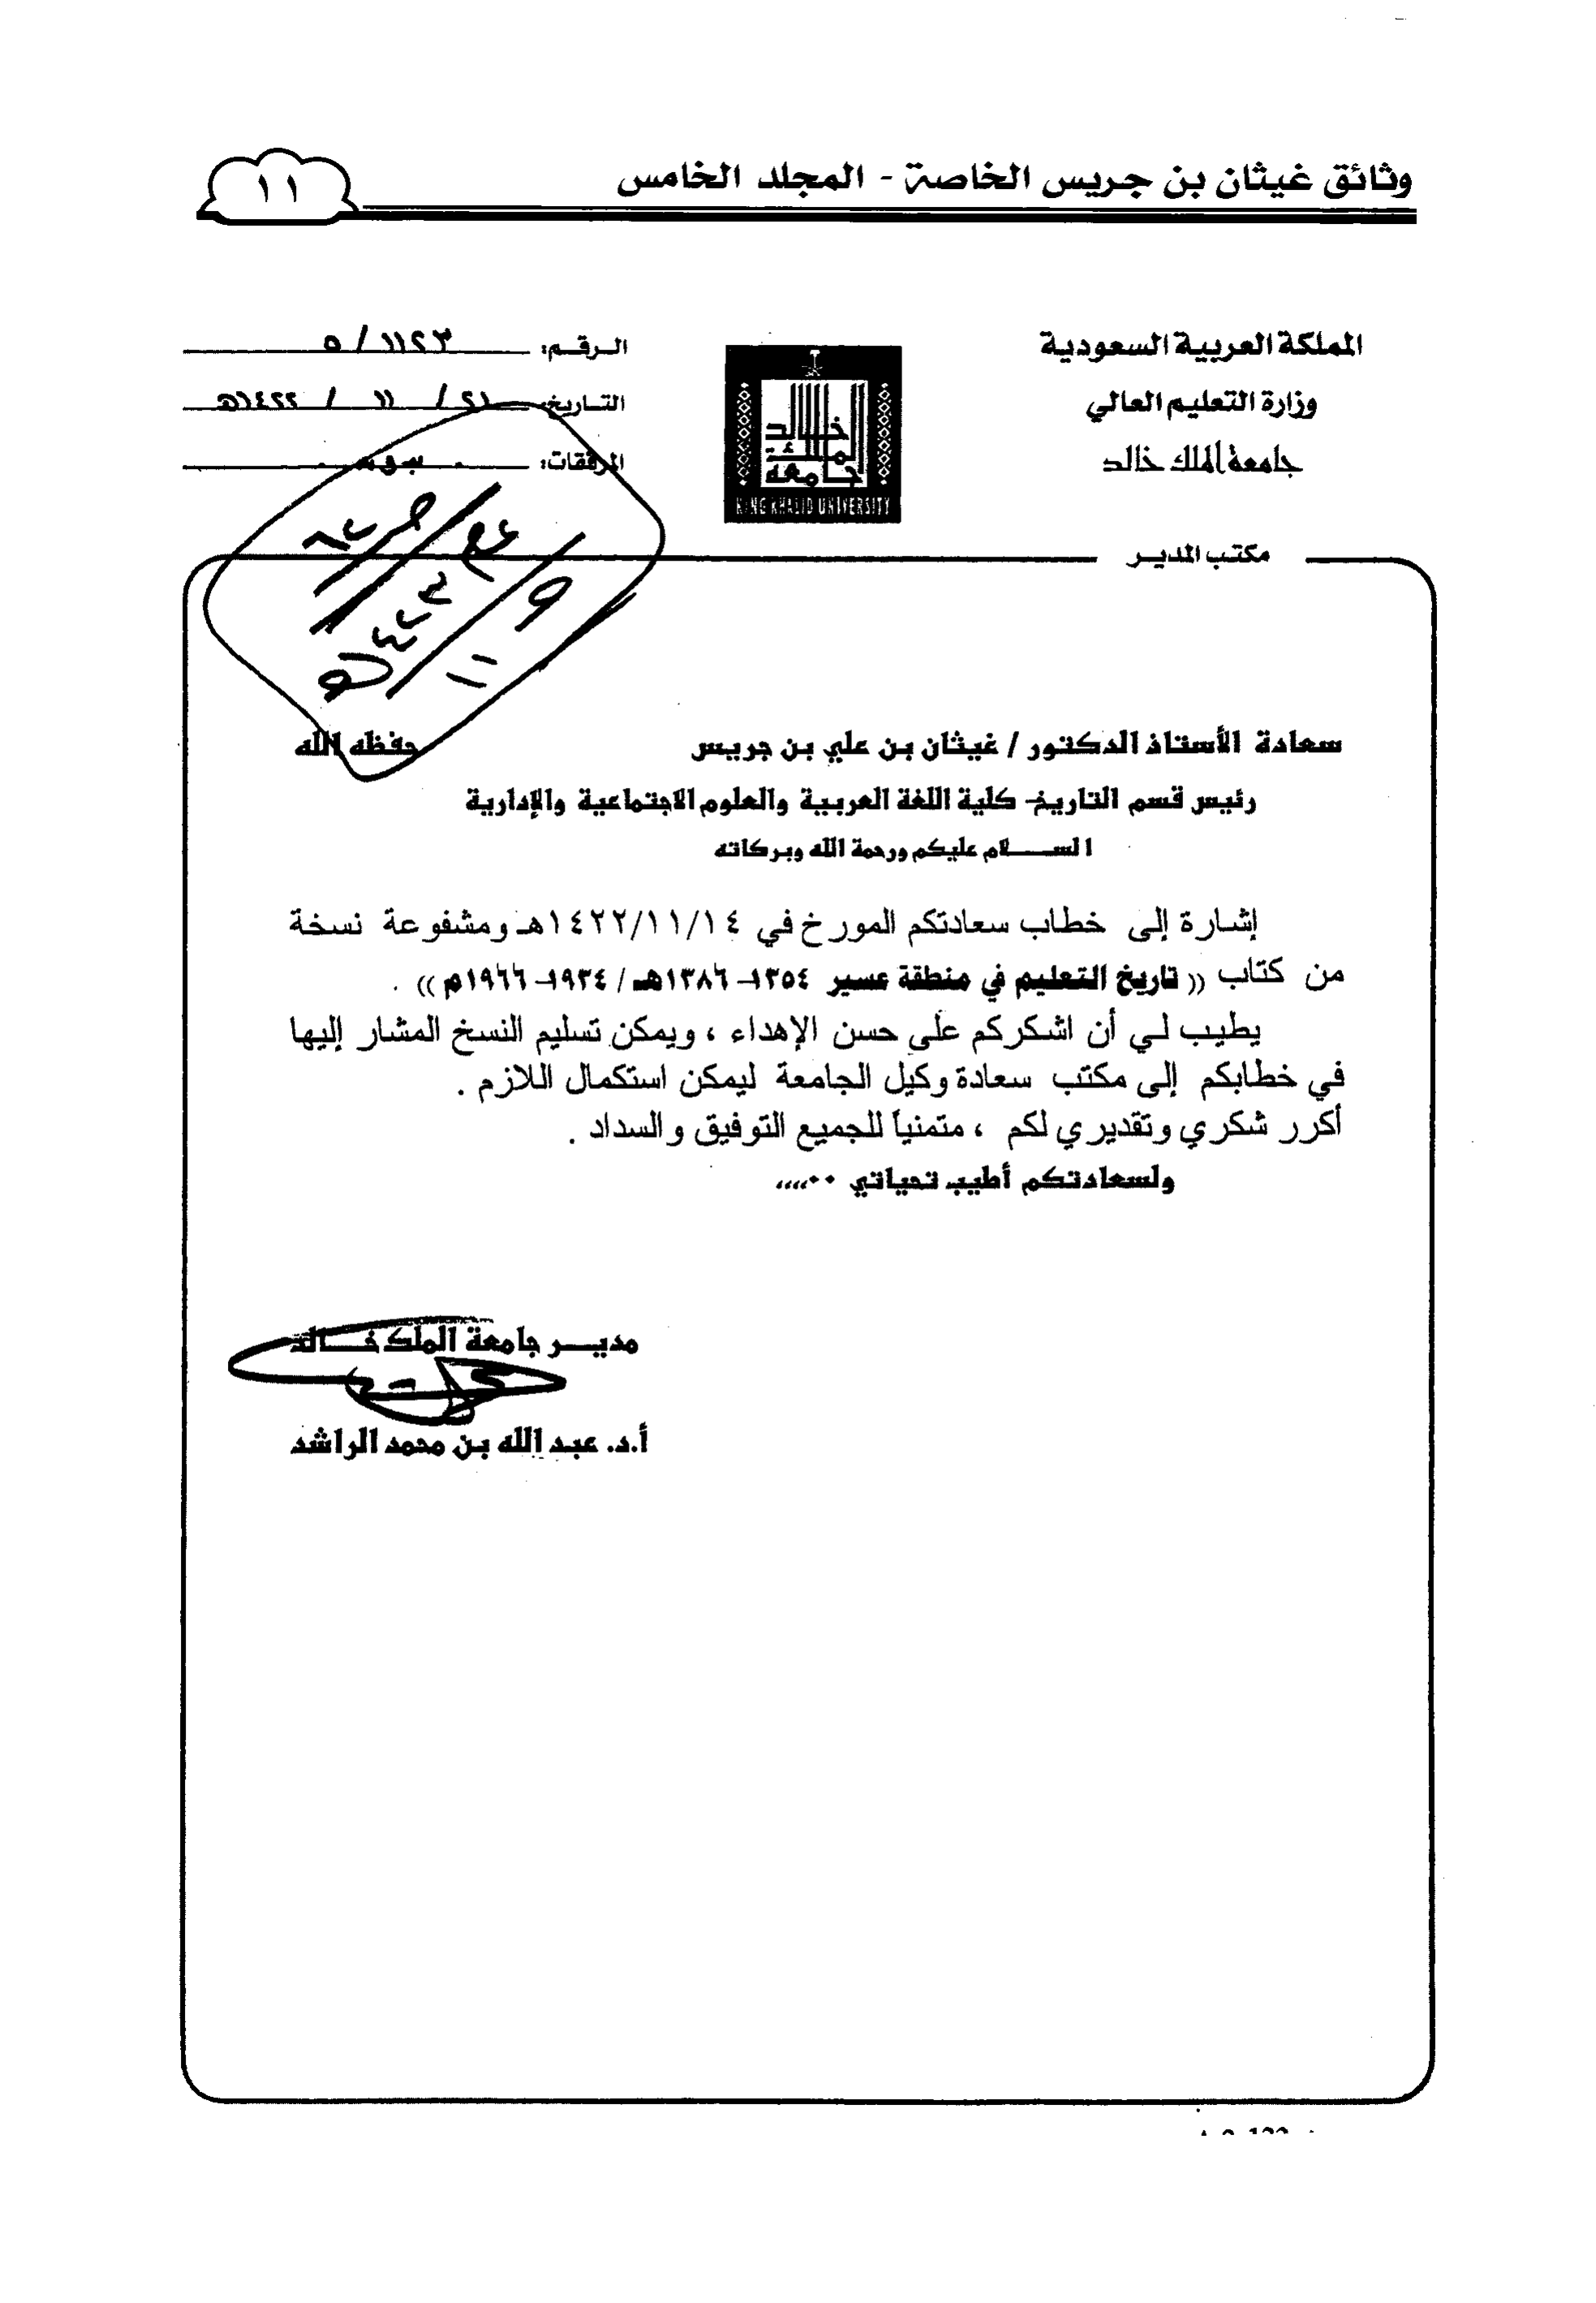 وثائق غيثان بن جريس الخاصة - المجلد الخامس
١١
المملكة العربية السعودية
وزارة التعليم العالي
جامعة الملك خالد
خالد
الملك
جامعة
KING KHALID UNIVERSITY
الرقم: ٥/١١٢٣
التاريخ: ٢١ / ١١ / ١٤٢٢هـ
المرفقات:
مكتب المدير
سعادة الأستاذ الدكتور / غيثان بن علي بن جريس حفظه الله
رئيس قسم التاريخ- كلية اللغة العربية والعلوم الاجتماعية والإدارية
السلام عليكم ورحمة الله وبركاته
إشارة إلى خطاب سعادتكم المورخ في ١٤٢٢/١١/١٤هـ ومشفوعة نسخة
من كتاب (( تاريخ التعليم في منطقة عسير ١٣٥٤-١٣٨٦هـ / ١٩٣٤-١٩٦٦م )) .
يطيب لي أن اشكركم على حسن الإهداء ، ويمكن تسليم النسخ المشار إليها
في خطابكم إلى مكتب سعادة وكيل الجامعة ليمكن استكمال اللازم .
أكرر شكري وتقديري لكم ، متمنياً للجميع التوفيق والسداد .
ولسعادتكم أطيب تحياتي ٠٠،،،،
مدير جامعة الملك خالد
أ.د. عبد الله بن محمد الراشد